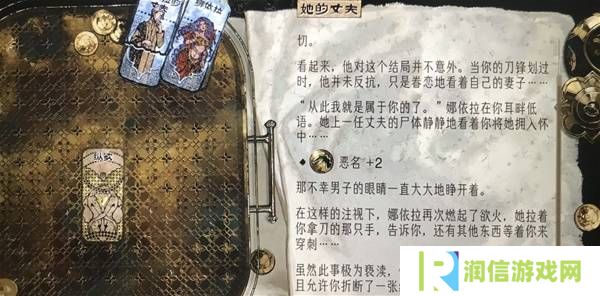 她的丈夫
娜依拉
纵欲
切。
看起来，他对这个结局并不意外。当你的刀锋划过
时，他并未反抗，只是眷恋地看着自己的妻子……
“从此我就是属于你的了。”娜依拉在你耳畔低
语。她上一任丈夫的尸体静静地看着你将她拥入怀
中……
恶名 +2
那不幸男子的眼睛一直大大地睁开着。
在这样的注视下，娜依拉再次燃起了欲火，她拉着
你拿刀的那只手，告诉你，还有其他东西等着你来
穿刺……
虽然此事极为亵渎，
且允许你折断了一张
润信游戏网